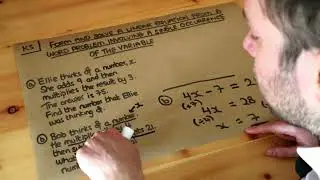 KS1
FORM AND SOLVE A LINEAR EQUATION FROM A
WORD PROBLEM INVOLVING A SINGLE OCCURRENCE
OF THE VARIABLE
a) Ellie thinks of a number, x.
She adds 9 and then
multiplies the result by 3.
The answer is 75.
Find the number that Ellie
was thinking of.
x
b) Bob thinks of a number.
He multiplies
then 21.
what
num
b) 4x - 7 = 2
(+7)
4x = 28
(÷4)
x = 7